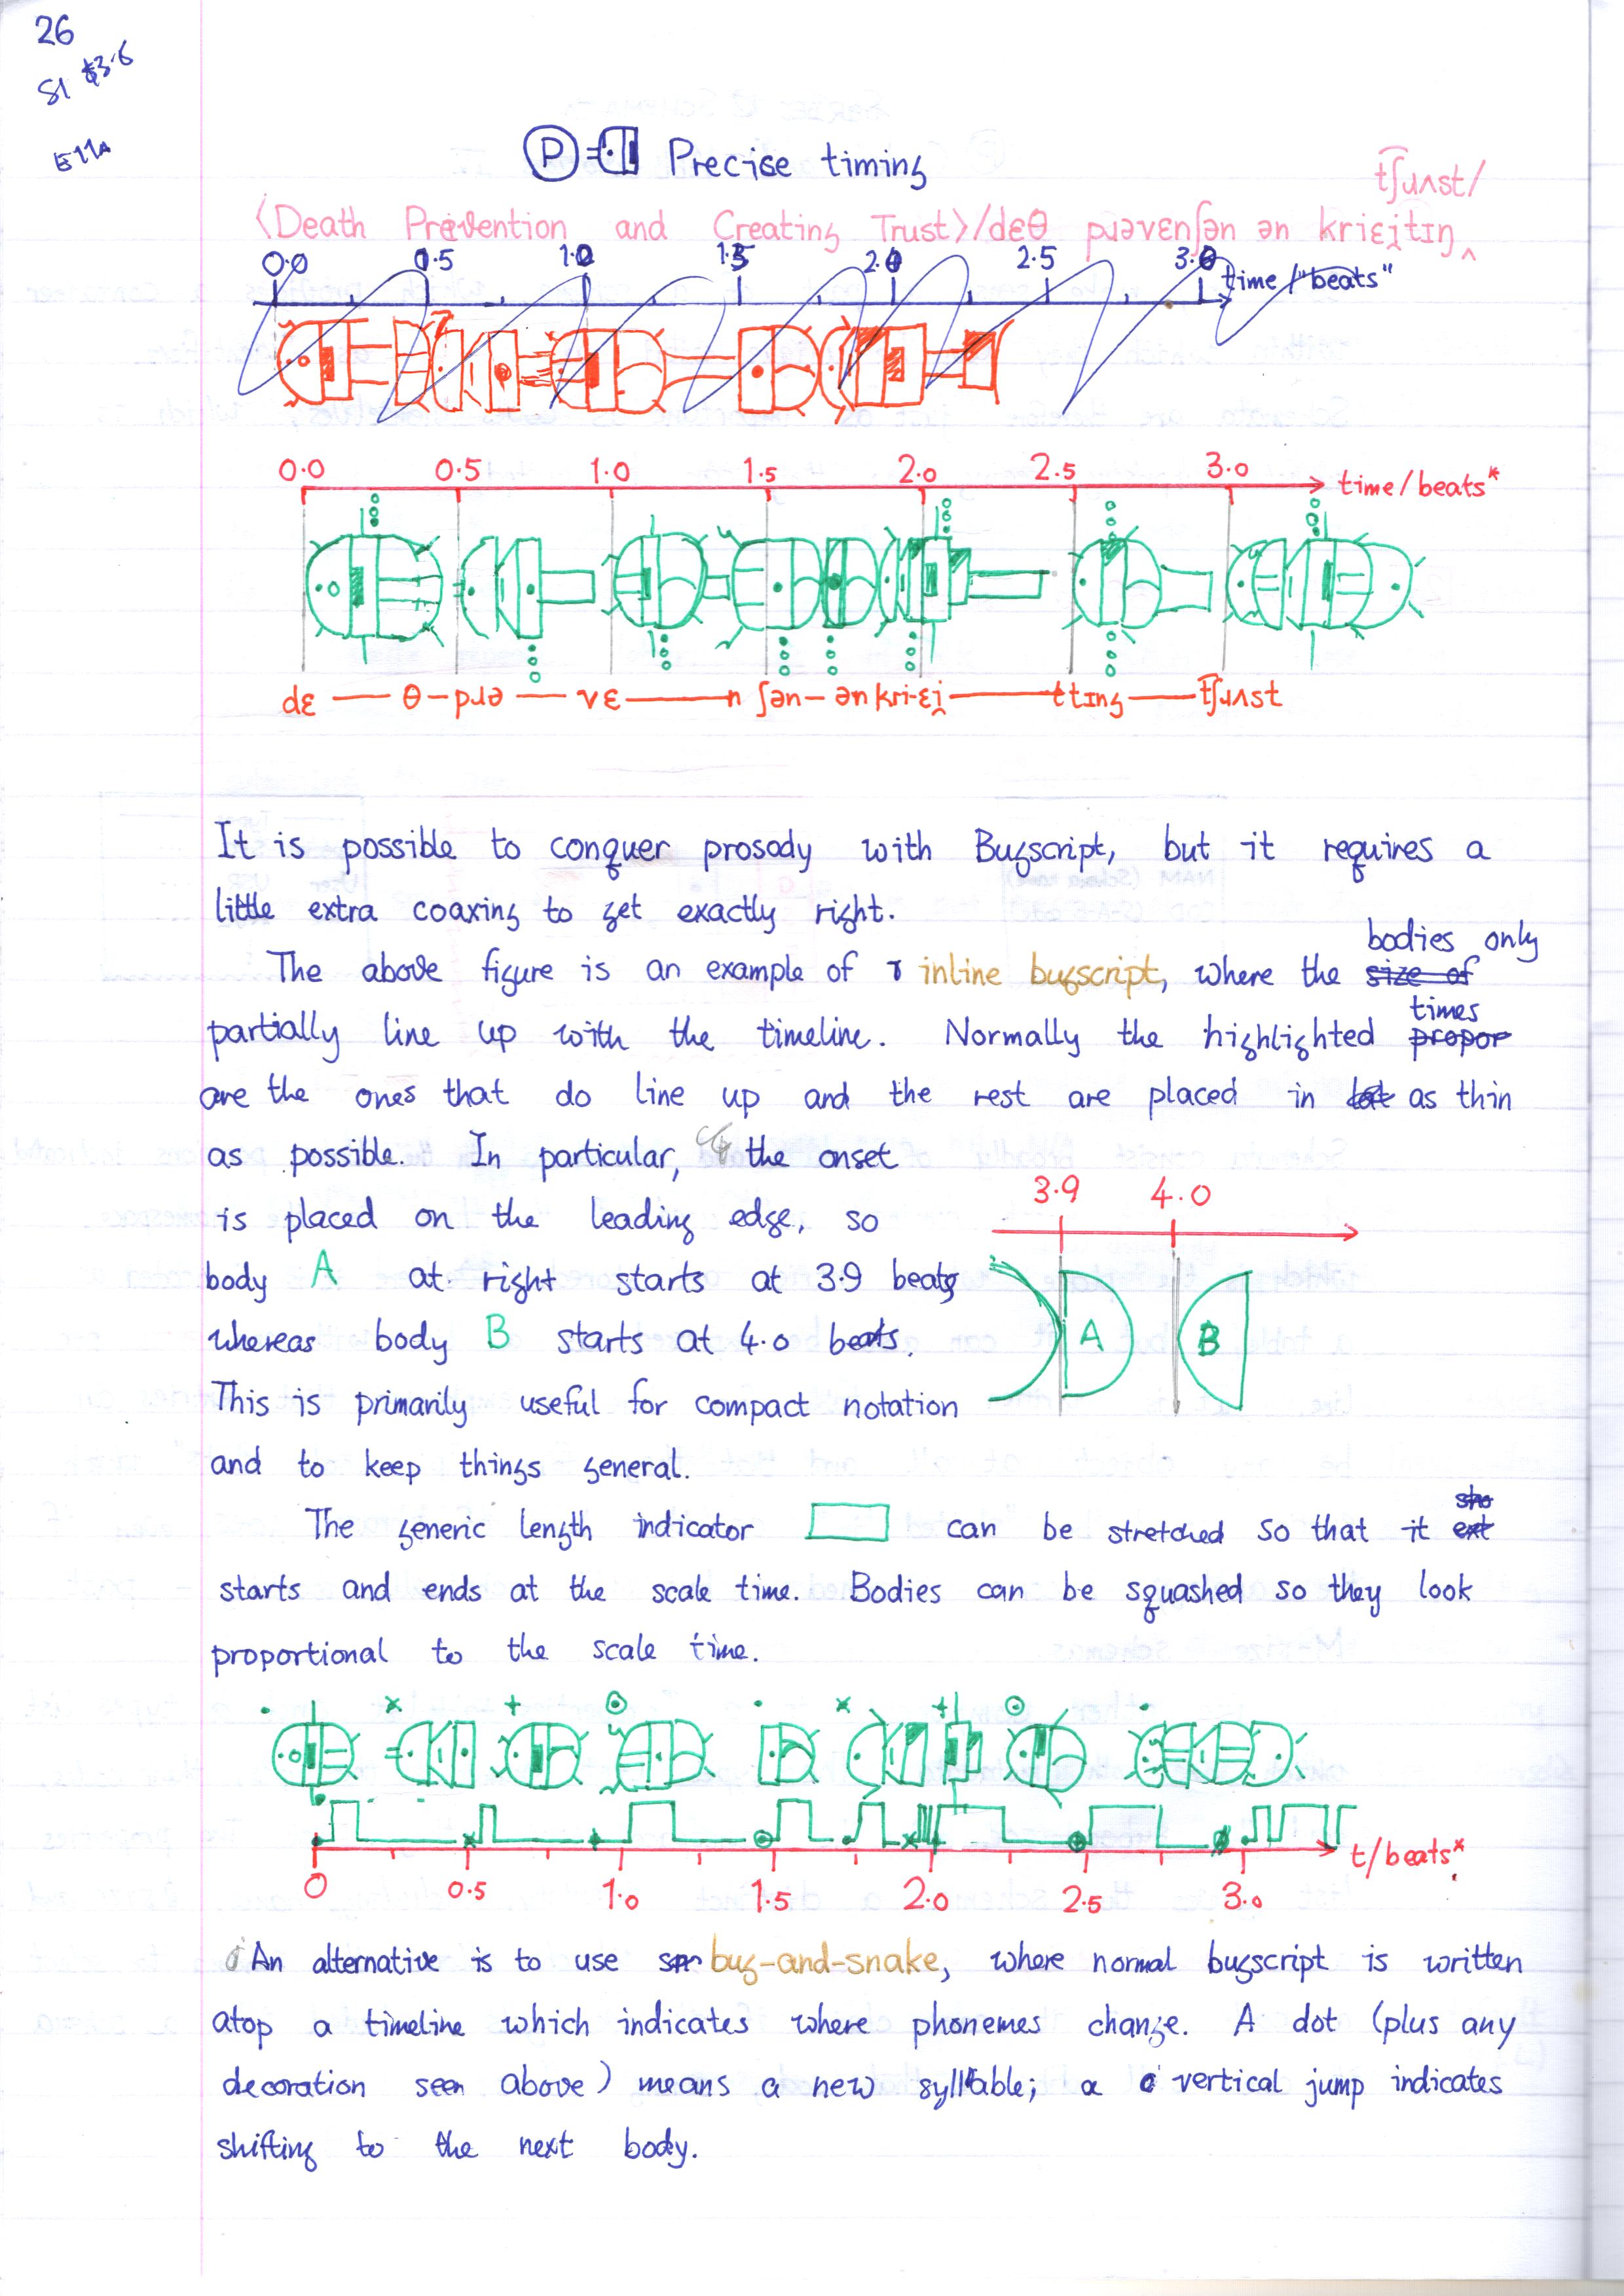 26
S1 $3.6
E11A
P Precise timing
t͡ʃɹʌst/
⟨Death Prevention and Creating Trust⟩/dɛθ pɹəvɛnʃən ən kriɛi̯tɪŋ ‸
0.0 0.5 1.0 1.5 2.0 2.5 3.0
time/"beats"
0.0 0.5 1.0 1.5 2.0 2.5 3.0
time/beats*
dɛ — θ-pɹə — vɛ — n ʃən — ən kri-ɛi̯ — tɪŋ — t͡ʃɹʌst
It is possible to conquer prosody with Bugscript, but it requires a
little extra coaxing to get exactly right.
bodies only
The above figure is an example of inline bugscript, where the size of
times
partially line up with the timeline. Normally the highlighted propor
are the ones that do line up and the rest are placed in as thin
as possible. In particular, the onset
is placed on the leading edge, so
body A at right starts at 3.9 beats
whereas body B starts at 4.0 beats.
This is primarily useful for compact notation
and to keep things general.
3.9 4.0
A B
The generic length indicator can be stretched so that it ext
sho
starts and ends at the scale time. Bodies can be squashed so they look
proportional to the scale time.
t/beats*
0 0.5 1.0 1.5 2.0 2.5 3.0
An alternative is to use bug-and-snake, where normal bugscript is written
atop a timeline which indicates where phonemes change. A dot (plus any
decoration seen above) means a new syllable; a vertical jump indicates
shifting to the next body.